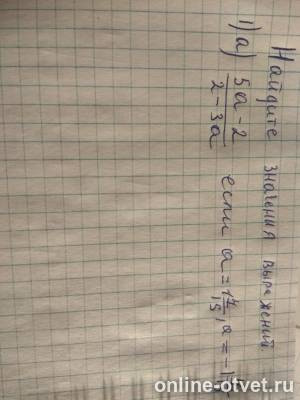 Найдите значения выражений
1) а) 5а - 2 / 2 - 3а если а = , а = -1
online-otvet.ru